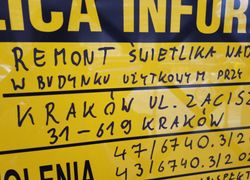 LICA INFOR
REMONT ŚWIETLIKA NAD
W BUDYNKU UŻYTKOWYM PRZY
KRAKÓW UL. ZACISZ
31-619 KRAKÓW
OLENIA
47/6740.3/20
43/6740.3/20